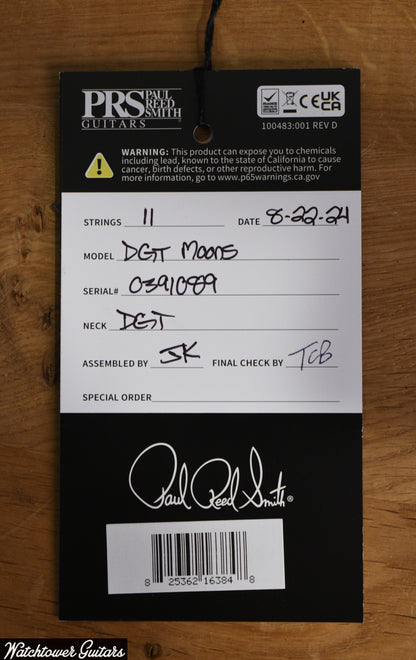 PRS PAUL REED SMITH
GUITARS
CE UKCA
100483:001 REV D
WARNING: This product can expose you to chemicals
including lead, known to the state of California to cause
cancer, birth defects, or other reproductive harm. For
more information, go to www.p65warnings.ca.gov
STRINGS 11 DATE 8-22-24
MODEL DGT Moons
SERIAL# 0391089
NECK DGT
ASSEMBLED BY JK FINAL CHECK BY TCB
SPECIAL ORDER
Paul Reed Smith®
8 25362 16384 8
Watchtower Guitars